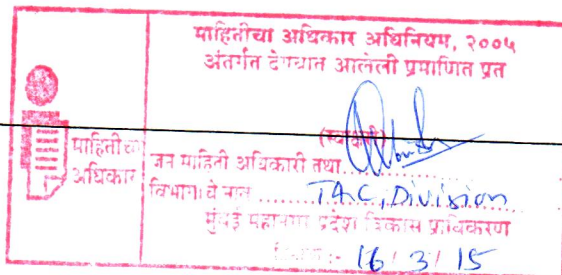 माहितीचा अधिकार अधिनियम, २००५
अंतर्गत देण्यात आलेली प्रमाणित प्रत
माहितीचा
अधिकार
(स्वाक्षरी)
जन माहिती अधिकारी तथा
विभागाचे नाव TAC, Division
मुंबई महानगर प्रदेश विकास प्राधिकरण
दिनांक:- 16/3/15